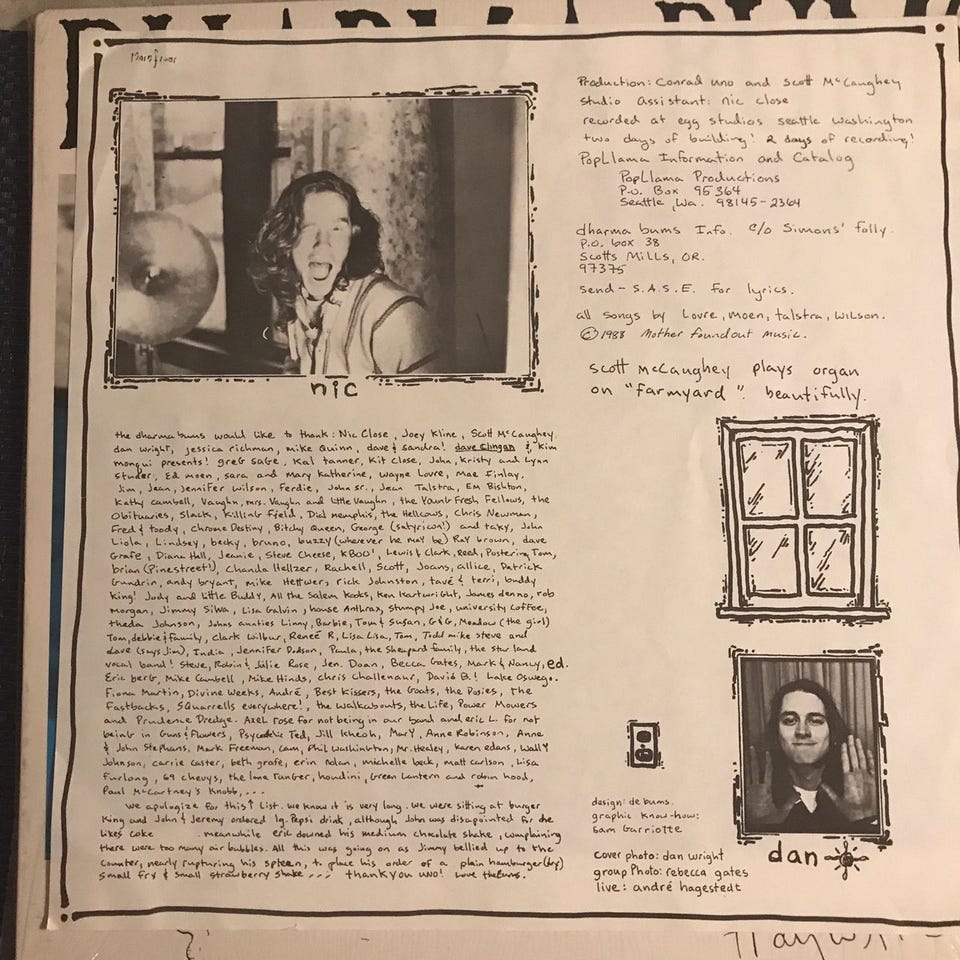 DHARMA BUMS
nic
the dharma bums would like to thank: Nic Close, Joey Kline, Scott McCaughey
dan wright, jessica richman, mike Quinn, dave & sandra! dave Clingan & Kim
monqui presents! greg sage, Kal tanner, Kit Close, John, Kristy and Lynn
Studer, Ed moen, sara and mary Katherine, wayne Lovre, Mae Finlay,
Jim, Jean, Jennifer wilson, Ferdie, John sr., Jean Talstra, Em Bishton,
Kathy cambell, Vaughn, mrs. Vaughn and little Vaughn, the Young Fresh Fellows, the
Obituaries, Slack, Killing Field, Dial memphis, the Hellcows, Chris Newman,
Fred & toody, Chrome Destiny, Bitchy Queen, George (satyricon!) and taky, John
Liola, Lindsey, becky, bruno, buzzy (wherever he may be) Ray brown, dave
Grafe, Diana Hall, Jeanie, Steve Cheese, KBOO!, Lewis & Clark, Reed, Postering Tom,
brian (Pinestreet!), Chanda Hellzer, Rachell, Scott, Joans, allice, Patrick
Gundrin, andy bryant, mike Hettwer, rick Johnston, tavé & terri, buddy
King! Jody and little Buddy, All the Salem kooks, Ken Kartwright, James denno, rob
morgan, Jimmy Silva, Lisa Galvin, house Anthrax, stumpy Joe, university Coffee,
theda Johnson, Johns aunties Linny, Barbie, Tom & Susan, G&G, Meadow (the girl)
Tom, debbie & family, Clark Wilbur, Reneé R, Lisa Lisa, Tom, Todd mike steve and
dave (says Jim), India, Jennifer Dodson, Paula, the Sheapard family, the star land
vocal band! Steve, Robin & Julie Rose, Jen. Doan, Becca Gates, Mark & Nancy, ed.
Eric berg, Mike Cambell, Mike Hinds, chris Challenaur, David B.! Lake Oswego.
Fiona Martin, Divine Weeks, André, Best Kissers, the Goats, the Posies, the
Fastbacks, Squarrells everywhere!, the Walkabouts, the Life, Power Mowers
and Prudence Dredge. Axel rose for not being in our band and eric L. for not
being in Guns & Flowers, Psycadelic Ted, Jill Kheoh, Mary, Anne Robinson, Anne
& John Stephans, Mark Freeman, cam, Phil Washington, Mr. Healey, karen edans, Wally
Johnson, carrie Caster, beth grafe, erin nolan, michelle beck, matt carlson, Lisa
Furlong, 69 chevys, the lone ranger, houdini, Green Lantern and robin hood,
Paul McCartney's Knobb, ...
we apologize for this ↑ list. we know it is very long. we were sitting at burger
King and John & Jeremy ordered lg. Pepsi drink, although John was disapointed for he
likes coke meanwhile eric downed his medium chocolate shake, complaining
there were too many air bubbles. All this was going on as Jimmy bellied up to the
Counter, nearly rupturing his spleen, to place his order of a plain hamburger (dry)
small fry & small strawberry shake ... thankyou uno! Love the bums.
Production: Conrad uno and Scott McCaughey
studio assistant: nic close
recorded at egg studios seattle washington
two days of building! 2 days of recording!
PopLlama Information and Catalog
PopLlama Productions
P.O. Box 95364
Seattle, Wa. 98145-2364
dharma bums Info. c/o Simons' folly
P.O. box 38
Scotts Mills, OR.
97375
send - S.A.S.E. for lyrics.
all songs by Lovre, moen, talstra, wilson.
© 1988 Mother foundout music.
scott mccaughey plays organ
on "farmyard". beautifully.
design: de bums.
graphic know-how:
Sam Garriotte
dan
cover photo: dan wright
group Photo: rebecca gates
live: andré hagestedt